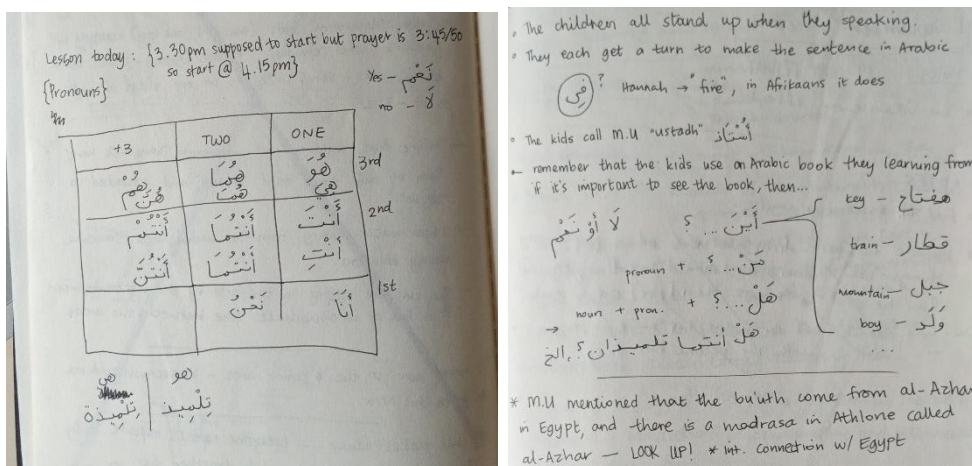 Lesson today : {3.30pm supposed to start but prayer is 3:45/50
so start @ 4.15pm}
{Pronouns}
Yes – نَعَم
no – لَا
+3 TWO ONE
هُمْ هُمَا هُوَ 3rd
هُنَّ هُمَا هِيَ
أَنْتُمْ أَنْتُمَا أَنْتَ 2nd
أَنْتُنَّ أَنْتُمَا أَنْتِ
نَحْنُ أَنَا 1st
هي هو
تِلْمِيذَة تِلْمِيذ
• The children all stand up when they speaking.
• They each get a turn to make the sentence in Arabic
فِي ? Hannah → "fire", in Afrikaans it does
• The kids call M.U "ustadh" أُسْتَاذ
– remember that the kids use an Arabic book they learning from
if it's important to see the book, then...
key – مفتاح
لَا أَوْ نَعَمْ أَيْنَ ... ؟
train – قطار
pronoun + مَنْ... ؟
mountain – جبل
noun + pron. + هَلْ...؟
boy – وَلَد
→ هَلْ أنتما تلميذان ؟ ,الخ
...
* M.U mentioned that the bu'uth come from al-Azhar
in Egypt, and there is a madrasa in Athlone called
al-Azhar – LOOK UP! * int. connection w/ Egypt